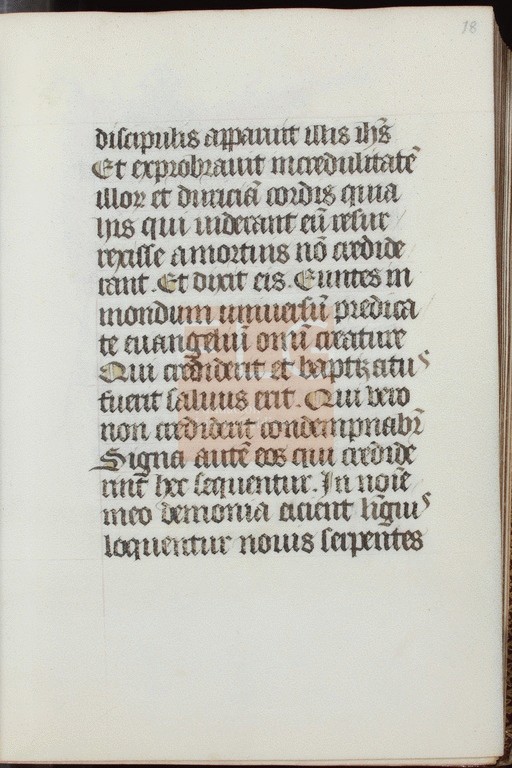 18
discipulis apparuit illis ihs̄
Et exprobrauit incredulitatē
illoꝝ et duriciā cordis quia
hiis qui uiderant eū resur
rexisse a mortuis nō credide
rant. Et dixit eis. Euntes in
mondum uniuersū predica
te euangeliū omni creature
Qui crediderit et baptizatus
fuerit saluus erit. Qui vero
non crediderit condempnabit̄
Signa autē eos qui credide
rint hec sequentur. In noīe
meo demonia eicient liguis
loquentur nouis serpentes